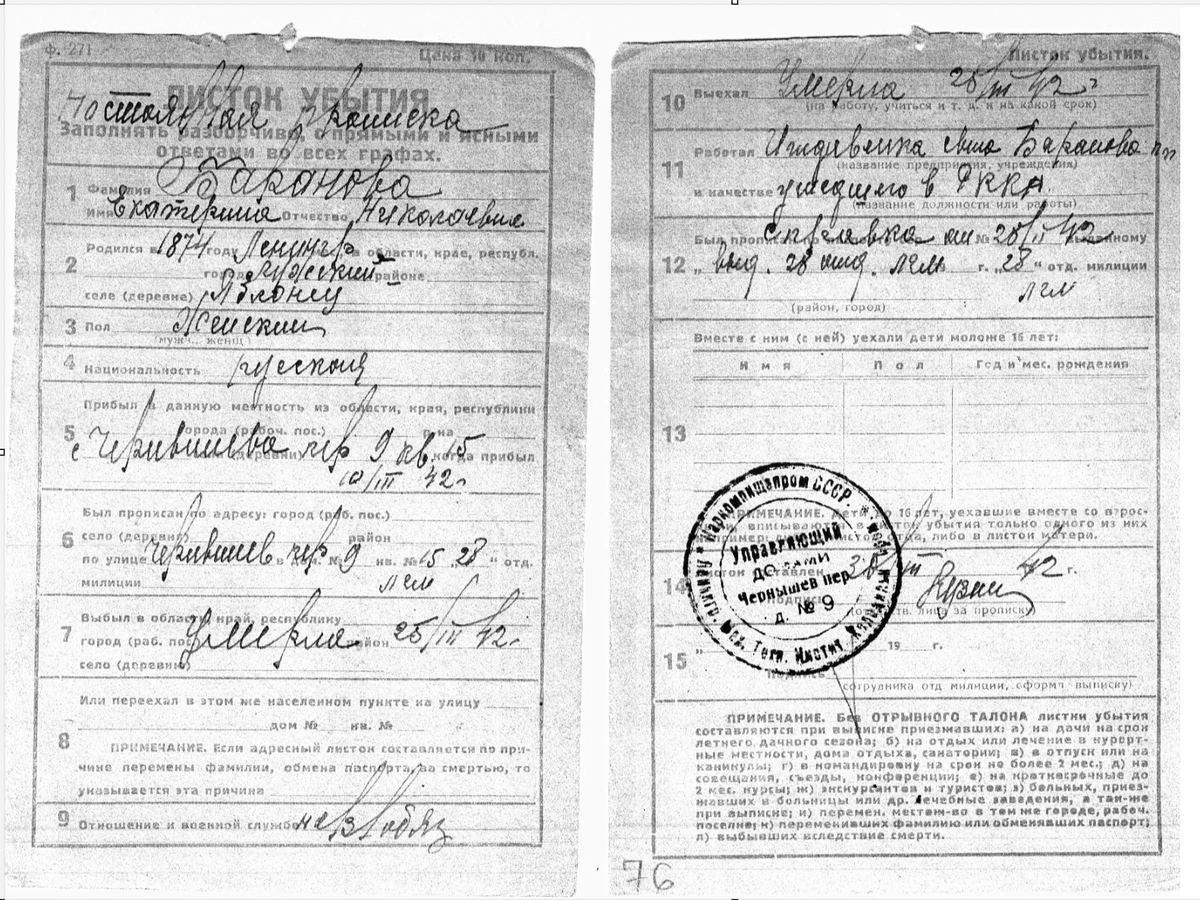 Ф. 271
Цена 10 коп.
ЛИСТОК УБЫТИЯ
Постоянная прописка
Заполнять разборчиво, с прямыми и ясными
ответами во всех графах.
1 Фамилия Баранова
Имя Екатерина Отчество Николаевна
2 Родился в 1874 году Ленингр в области, крае, республ.
город Лужский района
селе (деревне)
3 Пол Женский
(мужч., женщ.)
4 Национальность русская
Прибыл в данную местность из области, края, республики
5 города (рабоч. пос.) р-на
с Чернышева пер 9 кв. 15 когда прибыл
10/III 42 г
Был прописан по адресу: город (раб. пос.)
6 село (деревня) район
по улице Чернышев. пер. в дом. № 9 кв. № 15 28 " отд.
милиции лгм
Выбыл в область, край, республику
7 город (раб. пос.) Умерла район 25/III 42 г.
село (деревня)
Или переехал в этом же населенном пункте на улицу
дом № кв. №
8 ПРИМЕЧАНИЕ. Если адресный листок составляется по при-
чине перемены фамилии, обмена паспорта, за смертью, то
указывается эта причина
9 Отношение к военной службе не в/обяз
Листок убытия.
10 Выехал Умерла 25/III 42 г
(на работу, учиться и т. д. и на какой срок)
11 Работал Иждивенка сына Баранова
(название предприятия, учреждения)
в качестве ушедшего в РККА
(название должности или работы)
Был прописан по справка №
12 " выд. 28 отд. лгм г. "28 " отд. милиции
лгм
(район, город)
Вместе с ним (с ней) уехали дети моложе 16 лет:
Имя Пол Год и мес. рождения
13
ПРИМЕЧАНИЕ. Дети до 16 лет, уехавшие вместе со взрос-
лыми, вписываются в листок убытия только одного из них
например: в листок отца, либо в листок матери.
14 Листок составлен III 42 г.
подпись
(ответств. лица за прописку)
15 " 19 г.
подпись
(сотрудника отд милиции, оформ выписку)
Наркомпищепром СССР.
Ленингр. Инстит
Управляющий
ДОМАМИ
Чернышев пер.
д. № 9
ПРИМЕЧАНИЕ. Без ОТРЫВНОГО ТАЛОНА листки убытия
составляются при выписке приезжавших: а) на дачи на срок
летнего дачного сезона; б) на отдых или лечение в курорт-
ные местности, дома отдыха, санатории; в) в отпуск или на
каникулы; г) в командировку на срок не более 2 мес.; д) на
совещания, съезды, конференции; е) на краткосрочные до
2 мес. курсы; ж) экскурсантов и туристов; з) больных, приез-
жавших в больницы или др. лечебные заведения, а так-же
при выписке; и) перемен. местож-во в том же городе, рабоч.
поселке; к) переменивших фамилию или обменявших паспорт;
л) выбывших вследствие смерти.
76